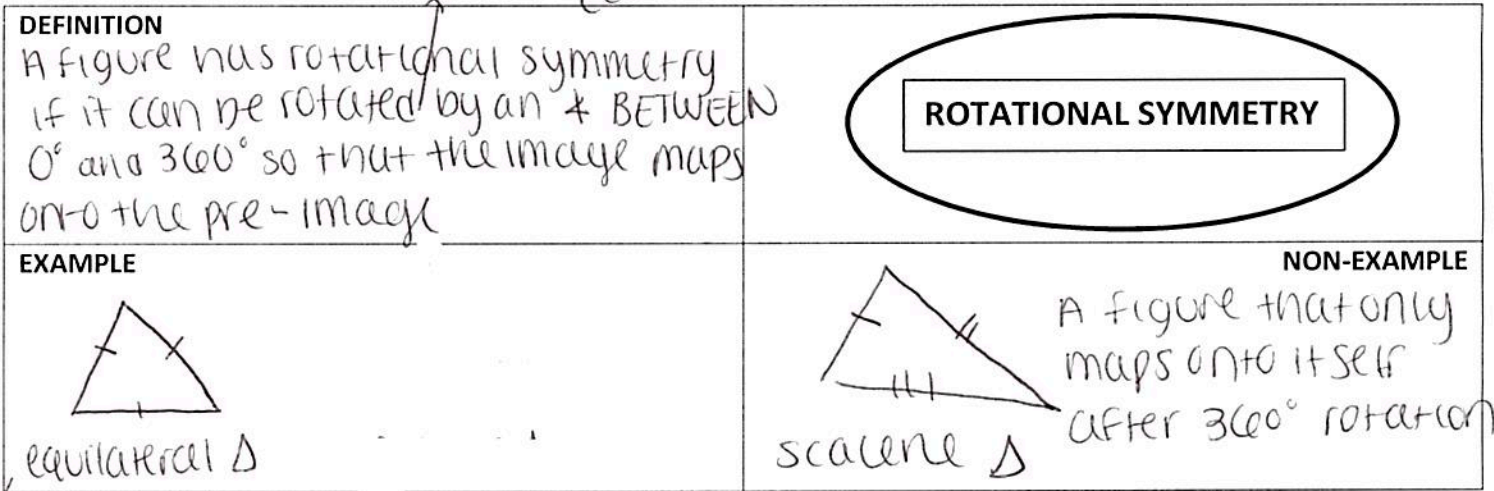 DEFINITION
A figure has rotational symmetry
if it can be rotated by an ∡ BETWEEN
0° and 360° so that the image maps
onto the pre-image
ROTATIONAL SYMMETRY
EXAMPLE
equilateral Δ
NON-EXAMPLE
A figure that only
maps onto itself
after 360° rotation
scalene Δ